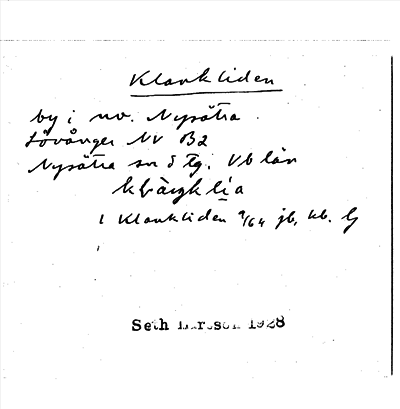 Klonkliden
by i nv. Nysätra
Lövånger NV B2
Nysätra sn S Tg. Vb län
1 Klonkliden 9/64 jb, kb.
Seth Larsson 1928